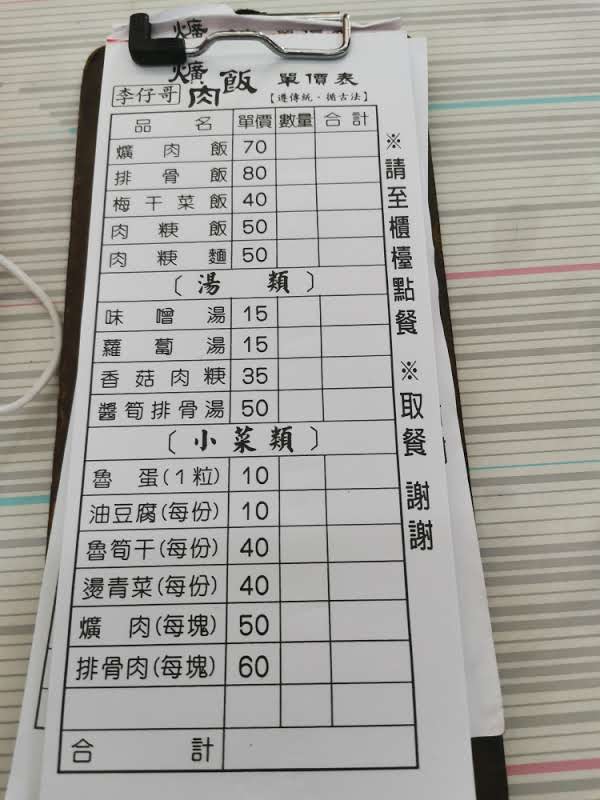 爌
爌肉飯 單價表
李仔哥 【遵傳統·循古法】
品名 單價 數量 合計
爌肉飯 70
排骨飯 80
梅干菜飯 40
肉粳飯 50
肉粳麵 50
〔湯類〕
味噌湯 15
蘿蔔湯 15
香菇肉粳 35
醬筍排骨湯 50
〔小菜類〕
魯蛋(1粒) 10
油豆腐(每份) 10
魯筍干(每份) 40
燙青菜(每份) 40
爌肉(每塊) 50
排骨肉(每塊) 60
合計
※請至櫃檯點餐 ※取餐 謝謝